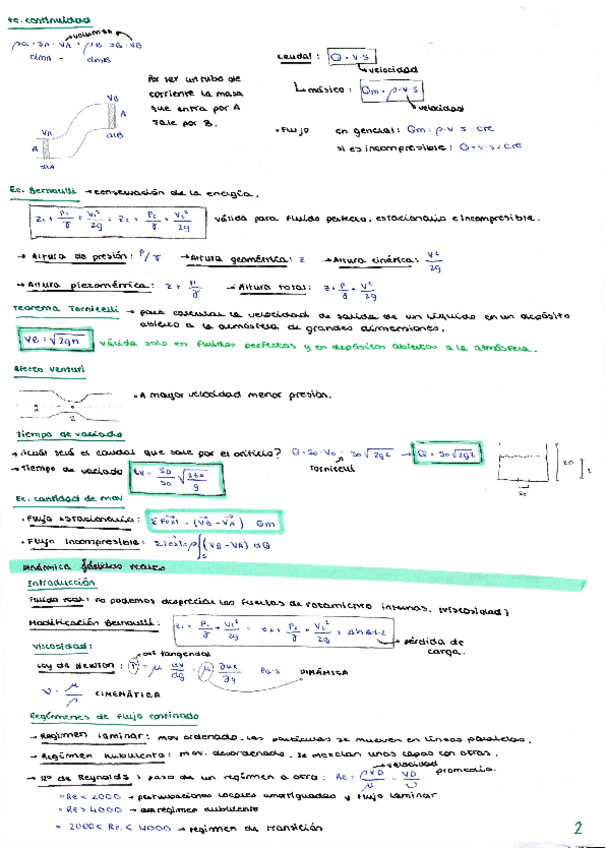 Ec. continuidad
volumen
ρA · SA · VA = ρB · SB · VB
dmA = dmB
caudal: Q = V·S
velocidad
másico: Qm = ρ·V·S
velocidad
Por ser un tubo de
corriente la masa
que entra por A
sale por B.
VB
A
VA
A
• Flujo en general: Qm = ρ·V·S = cte
si es incompresible: Q = V·S = cte
Ec. Bernoulli → conservación de la energía.
z1 + P1/γ + V1²/2g = z2 + P2/γ + V2²/2g válida para fluido perfecto, estacionario e incompresible.
→ Altura de presión: P/γ → Altura geométrica: z → Altura cinética: V²/2g
→ Altura piezométrica: z + P/γ → Altura total: z + P/γ + V²/2g
Teorema Torricelli → para calcular la velocidad de salida de un líquido en un depósito
abierto a la atmósfera de grandes dimensiones.
VB = √2gh válida solo en fluidos perfectos y en depósitos abiertos a la atmósfera.
Efecto Venturi
• A mayor velocidad menor presión.
1 2
2
Tiempo de vaciado
→ ¿cuál será el caudal que sale por el orificio? Q = So · VB = So √2gz → Q = So √2gz
Torricelli
→ Tiempo de vaciado
zo
z
So
Ec. cantidad de mov
• Flujo estacionario: Σ Fext = (VB - VA) Qm
• Flujo incompresible: Σ Fext = ρ∫(VB - VA) dQ
Dinámica fluidos reales
Introducción
Fluido real: no podemos despreciar las fuerzas de rozamiento internas. (viscosidad)
Modificación Bernoulli: z1 + P1/γ + V1²/2g = z2 + P2/γ + V2²/2g + Δh1-2
pérdida de
carga.
Viscosidad:
tangencial
Ley de Newton: τ = μ dv/dy = μ ∂ux/∂y Pa·s DINÁMICA
ν = μ/ρ CINEMÁTICA
Regímenes de flujo confinado
→ Régimen laminar: mov ordenado. Las partículas se mueven en líneas paralelas.
→ Régimen turbulento: mov. desordenado, se mezclan unas capas con otras.
velocidad
promedio.
→ Nº de Reynolds: paso de un régimen a otro: Re = ρVD/μ = VD/ν
• Re < 2000 → perturbaciones locales amortiguadas y flujo laminar
• Re > 4000 → régimen turbulento
• 2000 < Re < 4000 → régimen de transición
2